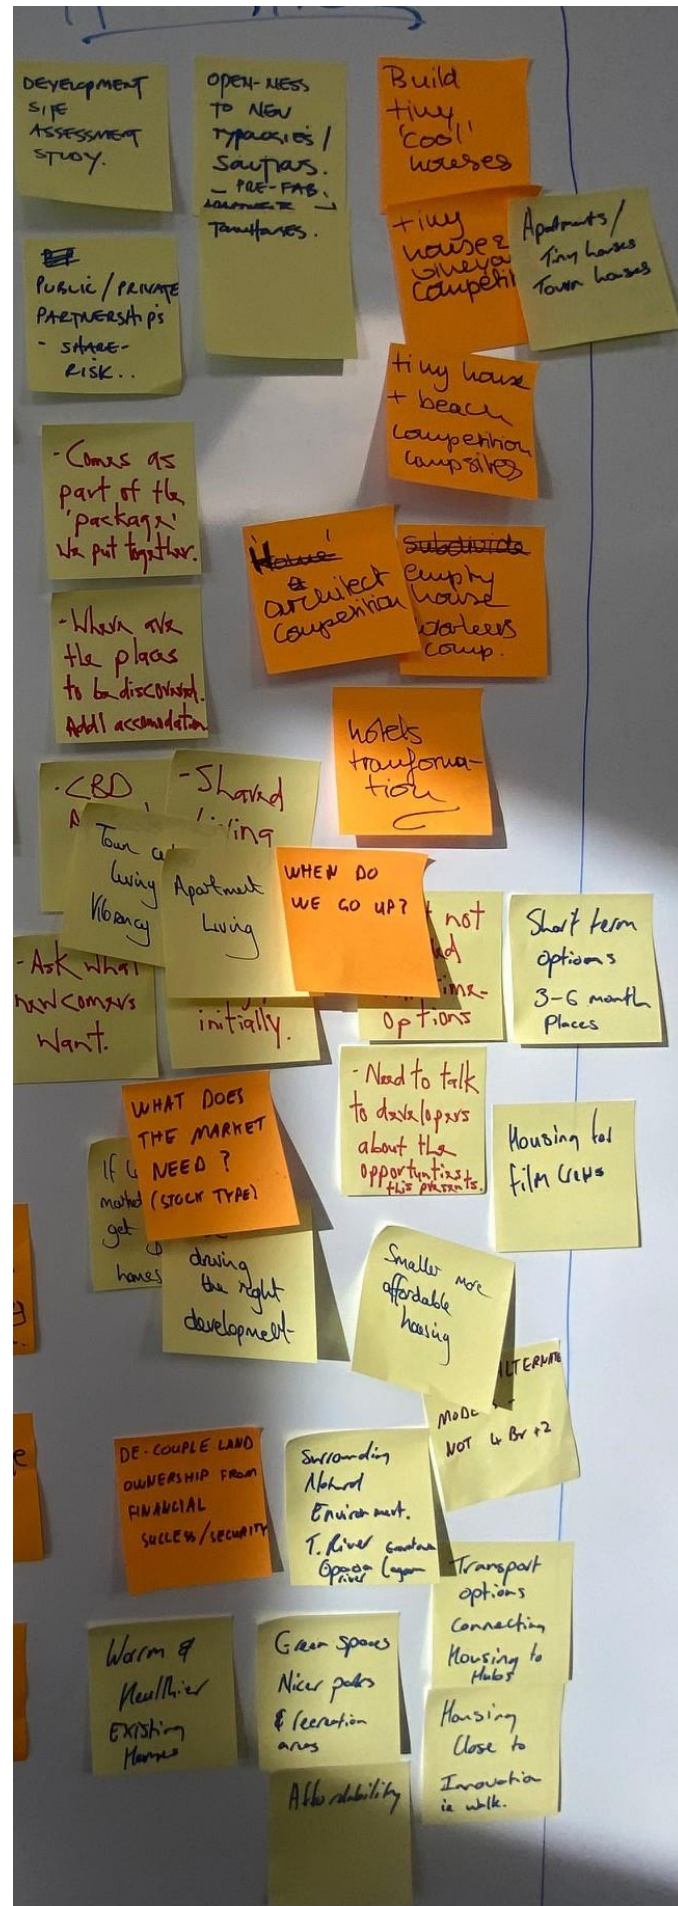 DEVELOPMENT
SITE
ASSESSMENT
STUDY.
OPEN-NESS
TO NEW
TYPOLOGIES /
SOLUTIONS.
- PRE-FAB.
TownHomes.
Build
tiny
'cool'
houses
tiny
house &
vineya
competiti
Apartments/
Tiny houses
Town houses
PUBLIC / PRIVATE
PARTNERSHIPS
- SHARE-
RISK..
tiny house
+ beach
competition
campsites
- Comes as
part of the
'package'
we put together.
'Home'
a
architect
competition
Subdivide
empty
house
workers
comp.
- Where are
the places
to be discovered.
Add'l accomodation
hotels
tranforma-
tion
- CBD
- Shared
living
Town ce
Living
Vibrancy
Apartment
Living
WHEN DO
WE GO UP?
not
time-
options
Short term
options
3-6 month
Places
- Ask what
newcomers
want.
initially.
- Need to talk
to developers
about the
opportunties
this presents.
WHAT DOES
THE MARKET
NEED?
(STOCK TYPE)
Housing for
film crews
If
get
homes
driving
the right
development
Smaller more
affordable
housing
ALTERNATE
NOT 4 Br +2
DE-COUPLE LAND
OWNERSHIP FROM
FINANCIAL
SUCCESS/SECURITY
Surrounding
Natural
Environment.
T. River
Opaoa Lagoon
river
Transport
options
Connecting
Housing to
Hubs
Warm &
Healthier
Existing
Homes
Green spaces
Nicer parks
& recreation
areas
Housing
Close to
Innovation
ie walk.
Affordability